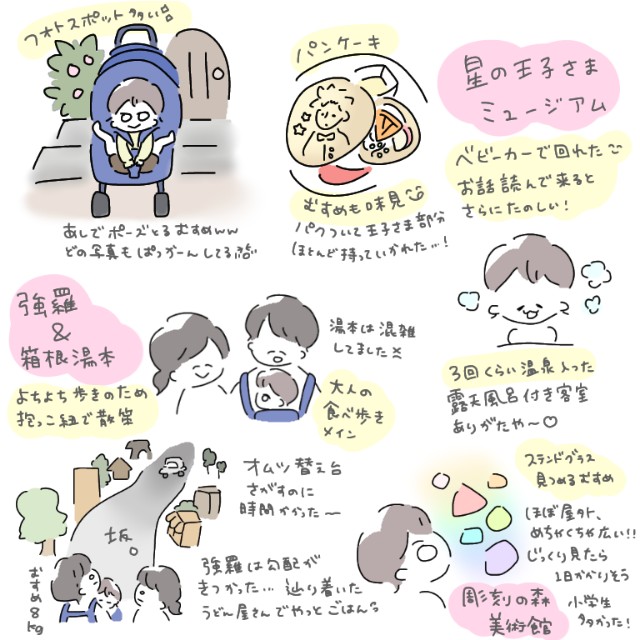 フォトスポット多い
あしでポーズとるむすめww
どの写真もぱっかーんしてる
パンケーキ
むすめも味見
パクついて王子さま部分
ほとんど持っていかれた…!
星の王子さま
ミュージアム
ベビーカーで回れた
お話読んで来ると
さらにたのしい!
3回くらい温泉入った
露天風呂付き客室
ありがたや〜♡
強羅
&
箱根湯本
よちよち歩きのため
抱っこ紐で散策
湯本は混雑
してました
大人の
食べ歩き
メイン
オムツ替え台
さがすのに
時間かかった〜
坂。
むすめ8kg
強羅は勾配が
きつかった…辿り着いた
うどん屋さんでやっとごはん
ステンドグラス
見つめるむすめ
ほぼ屋外、
めちゃくちゃ広い!!
じっくり見たら
1日かかりそう
小学生
多かった!
彫刻の森
美術館